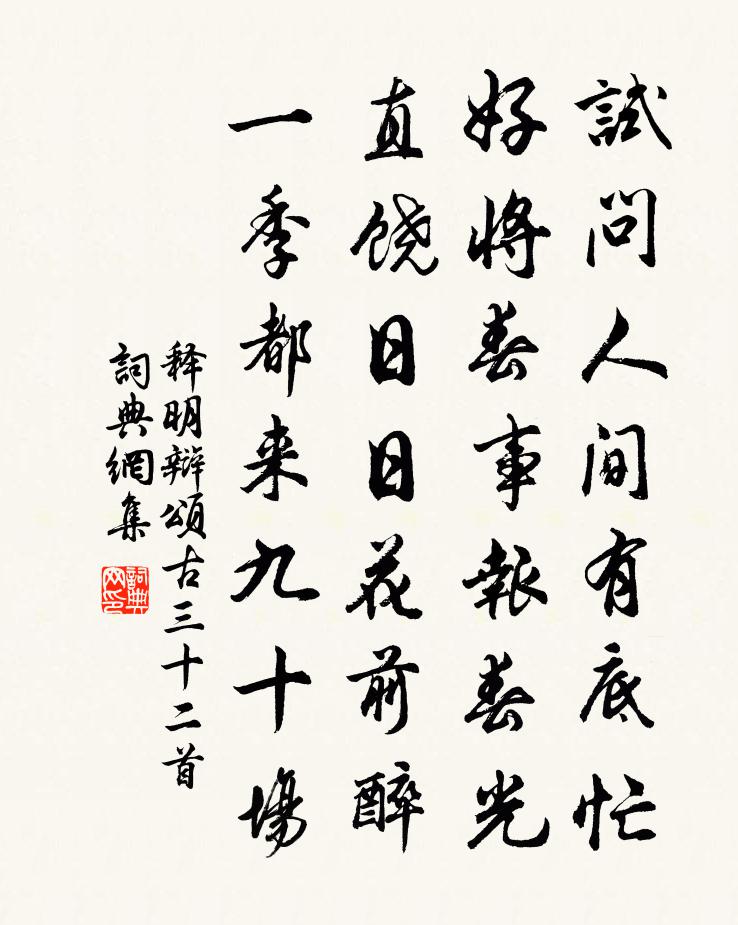 試問人间有底忙
好將春事報春光
直饶日日花前醉
一季都来九十場
释明辩頌古三十二首
詞典網集
詞典網印